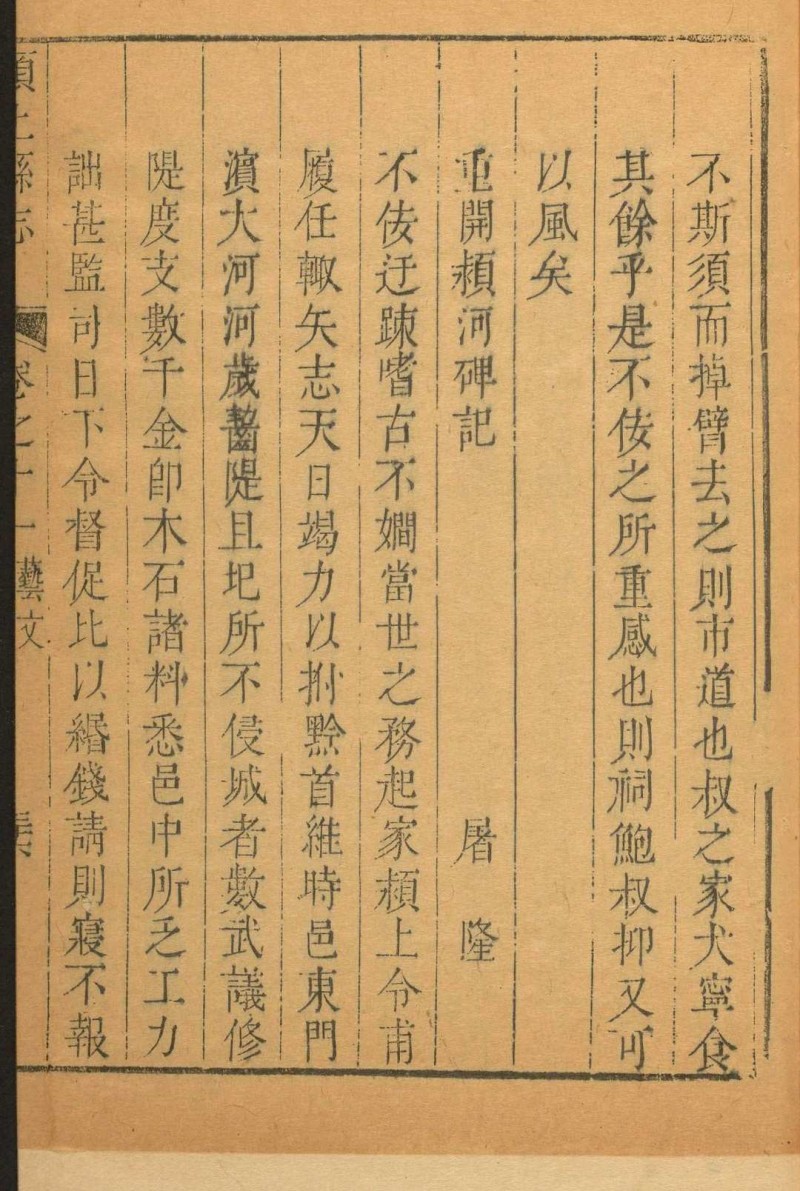 不斯須而掉臂去之則市道也叔之家犬寧食
其餘乎是不佞之所重感也則祠鮑叔抑又可
以風矣
重開潁河碑記 屠隆
不佞迂踈嗜古不嫺當世之務起家潁上令甫
履任輙矢志天日竭力以拊黔首維時邑東門
濵大河河歲齧隄且圯所不侵城者數武議修
隄度支數千金卽木石諸料悉邑中所乏工力
詘甚監司日下令督促比以緡錢請則寢不報
潁上縣志 卷之十一 藝文